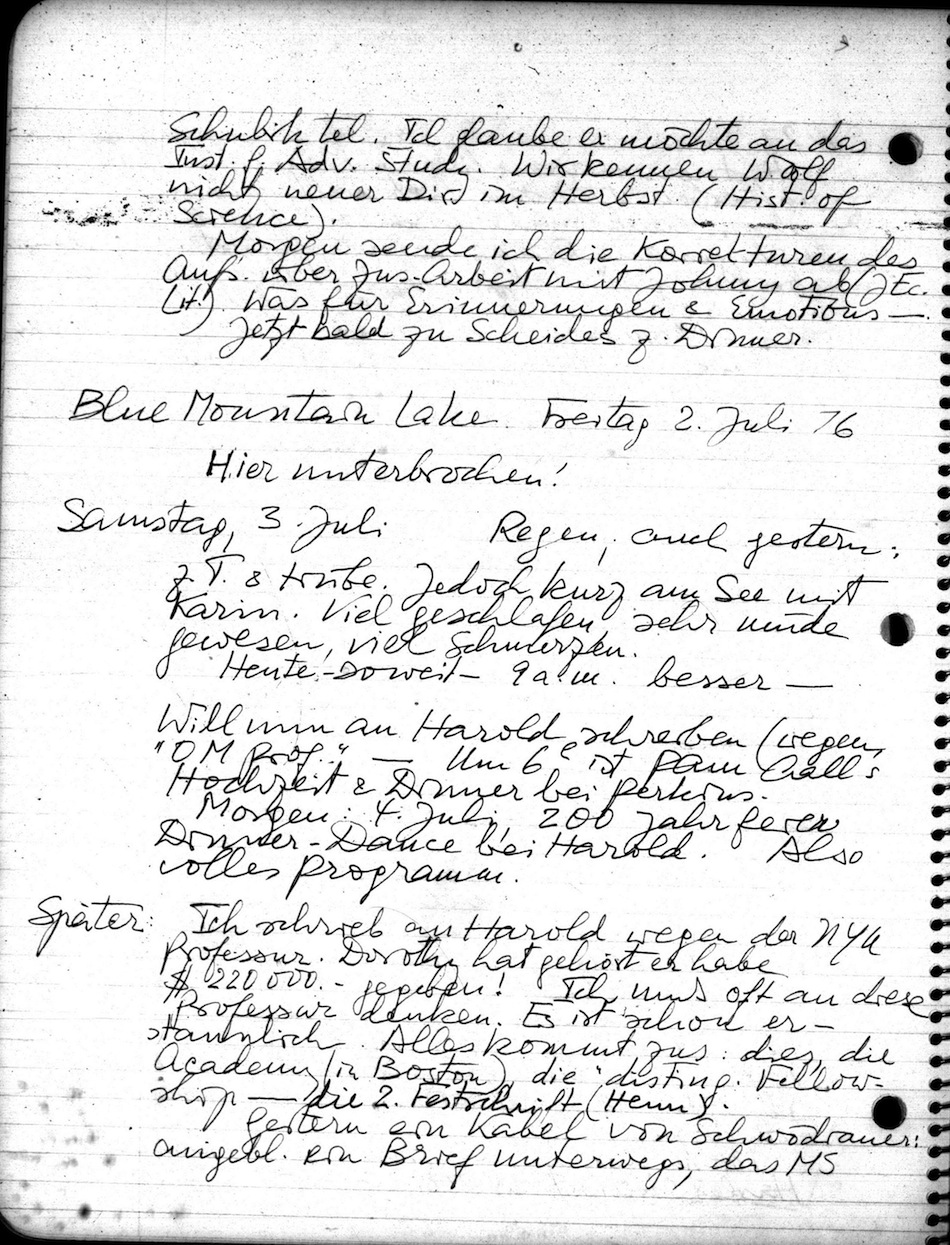 Schubik tel. Ich glaube er möchte an das
Inst. f. Adv. Study. Wir kennen Wolf
nicht, neuer Dir. im Herbst. (Hist. of
Science).
Morgen sende ich die Korrekturen des
Aufs. über Zus-Arbeit mit Johnny ab (J Ec.
Lit.) Was für Erinnerungen & Emotions —.
Jetzt bald zu Scheides z. Dinner.
Blue Mountain Lake. Freitag 2. Juli 76
Hier unterbrochen!
Samstag, 3. Juli Regen, auch gestern,
z. T. & trübe. Jedoch kurz am See mit
Karin. Viel geschlafen, sehr müde
gewesen, viel Schmerzen.
Heute - soweit - 9 a.m. besser —
Will nun an Harold schreiben (wegen
"OM Prof." — Um 6 ist Pam
Hochzeit & Dinner bei Perkins.
Morgen: 4. Juli, 200 Jahrfeier,
Dinner-Dance bei Harold. Also
volles Programm.
Später: Ich schrieb an Harold wegen der NYU
Professur. Dorothy hat gehört er habe
$ 220 000.- gegeben! Ich muss oft an diese
Professur denken. Es ist schon er-
staunlich. Alles kommt zus: dies, die
Academy (in Boston), die "disting. Fellow-
ship — die 2. Festschrift (Henn).
Gestern ein Kabel von Schwödiauer:
angebl. ein Brief unterwegs, das MS